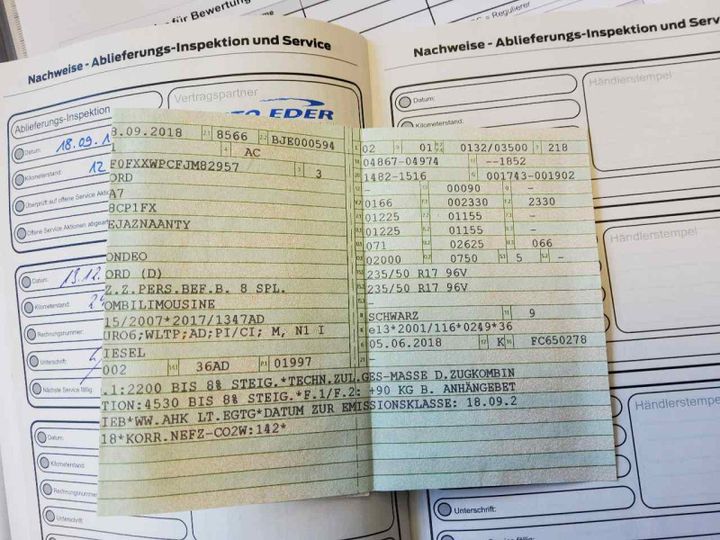 für Bewertung
= Regulierer
Nachweise - Ablieferungs-Inspektion und Service
Ablieferungs-Inspektion
Vertragspartner
EDER
Datum:
18.09.1
Kilometerstand:
12
Überprüft auf offene Service Aktionen
Offene Service Aktionen
Datum:
13.12.
Kilometerstand:
Rechnungsnummer:
Unterschrift:
Nächste Service fällig:
Datum:
Kilometerstand:
Rechnungsnummer:
Unterschrift:
Nachweise - Ablieferungs-Inspektion und Serv
Datum:
Kilometerstand:
Händlerstempel
Händlerstempel
Händlerstempel
Unterschrift:
8.09.2018 2.1 8566 2.2 BJE000594
AC
F0FXXWPCFJM82957 3
ORD
A7
8CP1FX
EJAZNAANTY
ONDEO
ORD (D)
Z.Z.PERS.BEF.B. 8 SPL.
OMBILIMOUSINE
15/2007*2017/1347AD
URO6;WLTP;AD;PI/CI; M, N1 I
IESEL
002 36AD 01997
02 01 0132/03500 218
04867-04974 --1852
1482-1516 001743-001902
- 00090 -
0166 002330 2330
01225 01155 -
01225 01155 -
071 02625 066
02000 0750 5 -
235/50 R17 96V
235/50 R17 96V
-
SCHWARZ 9
e13*2001/116*0249*36
05.06.2018 K FC650278
-
.1:2200 BIS 8% STEIG.*TECHN.ZUL.GES-MASSE D.ZUGKOMBIN
TION:4530 BIS 8% STEIG.*F.1/F.2: +90 KG B. ANHÄNGEBET
IEB*WW.AHK LT.EGTG*DATUM ZUR EMISSIONSKLASSE: 18.09.2
18*KORR.NEFZ-CO2W:142*